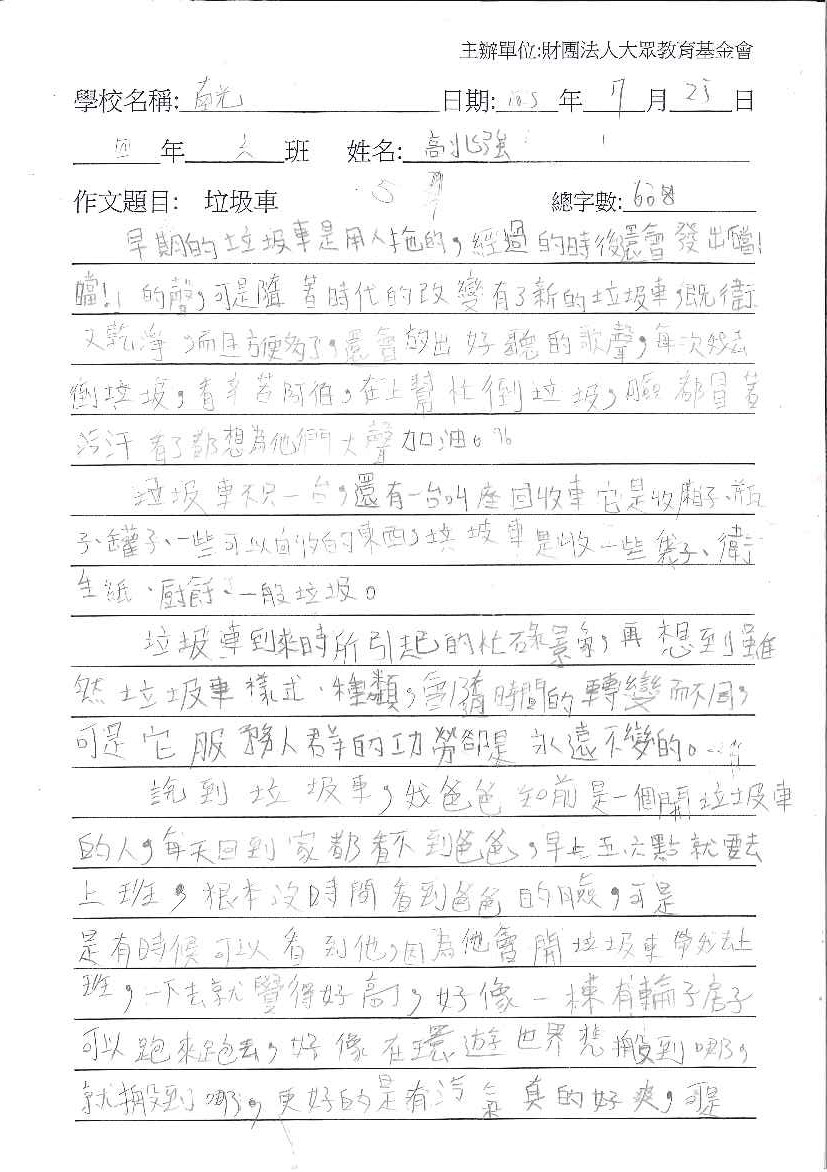 主辦單位:財團法人大眾教育基金會
學校名稱: 南光 日期: 105 年 7 月 25 日
四 年 六 班 姓名: 高兆強
作文題目: 垃圾車 總字數:
早期的垃圾車是用人拖的,經過的時後還會發出噹!
噹!的聲,可是隨著時代的改變有了新的垃圾車,既衛
又乾淨,而且方便多了,還會放出好聽的歌聲,每次我去
倒垃圾,看辛苦阿伯,在上幫忙倒垃圾,臉都冒著
汗看了都想為他們大聲加油。
垃圾車不只一台,還有一台叫座回收車它是收廂子、瓶
子、罐子、一些可以回收的東西,垃圾車是收一些袋子、衛
生紙、廚餘、一般垃圾。
垃圾車到來時所引起的忙碌景象,再想到雖
然垃圾車樣式、種類,會隨時間的轉變而不同,
可是它服務人群的功勞卻是永遠不變的。
說到垃圾車,我爸爸知前是一個開垃圾車
的人,每天回到家都看不到爸爸,早上五、六點就要去
上班,狠本沒時間看到爸爸的臉,可是
是有時候可以看到他,因為他會開垃圾車帶我去上
班,一下去就覺得好高,好像一棟有輪子房子
可以跑來跑去,好像在環遊世界想搬到哪,
就搬到哪,更好的是有汽氣真的好爽,可是